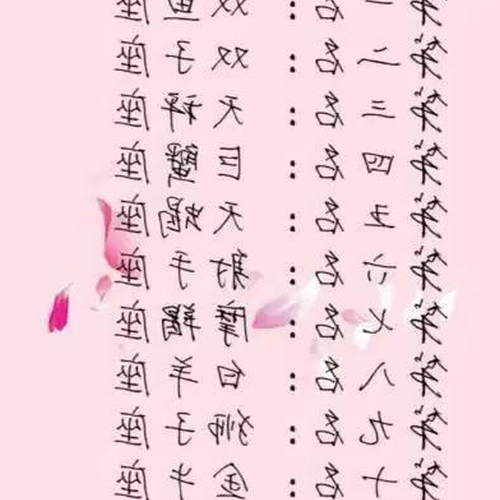 第一名：双鱼座
第二名：双子座
第三名：天秤座
第四名：巨蟹座
第五名：天蝎座
第六名：射手座
第七名：摩羯座
第八名：白羊座
第九名：狮子座
第十名：金牛座